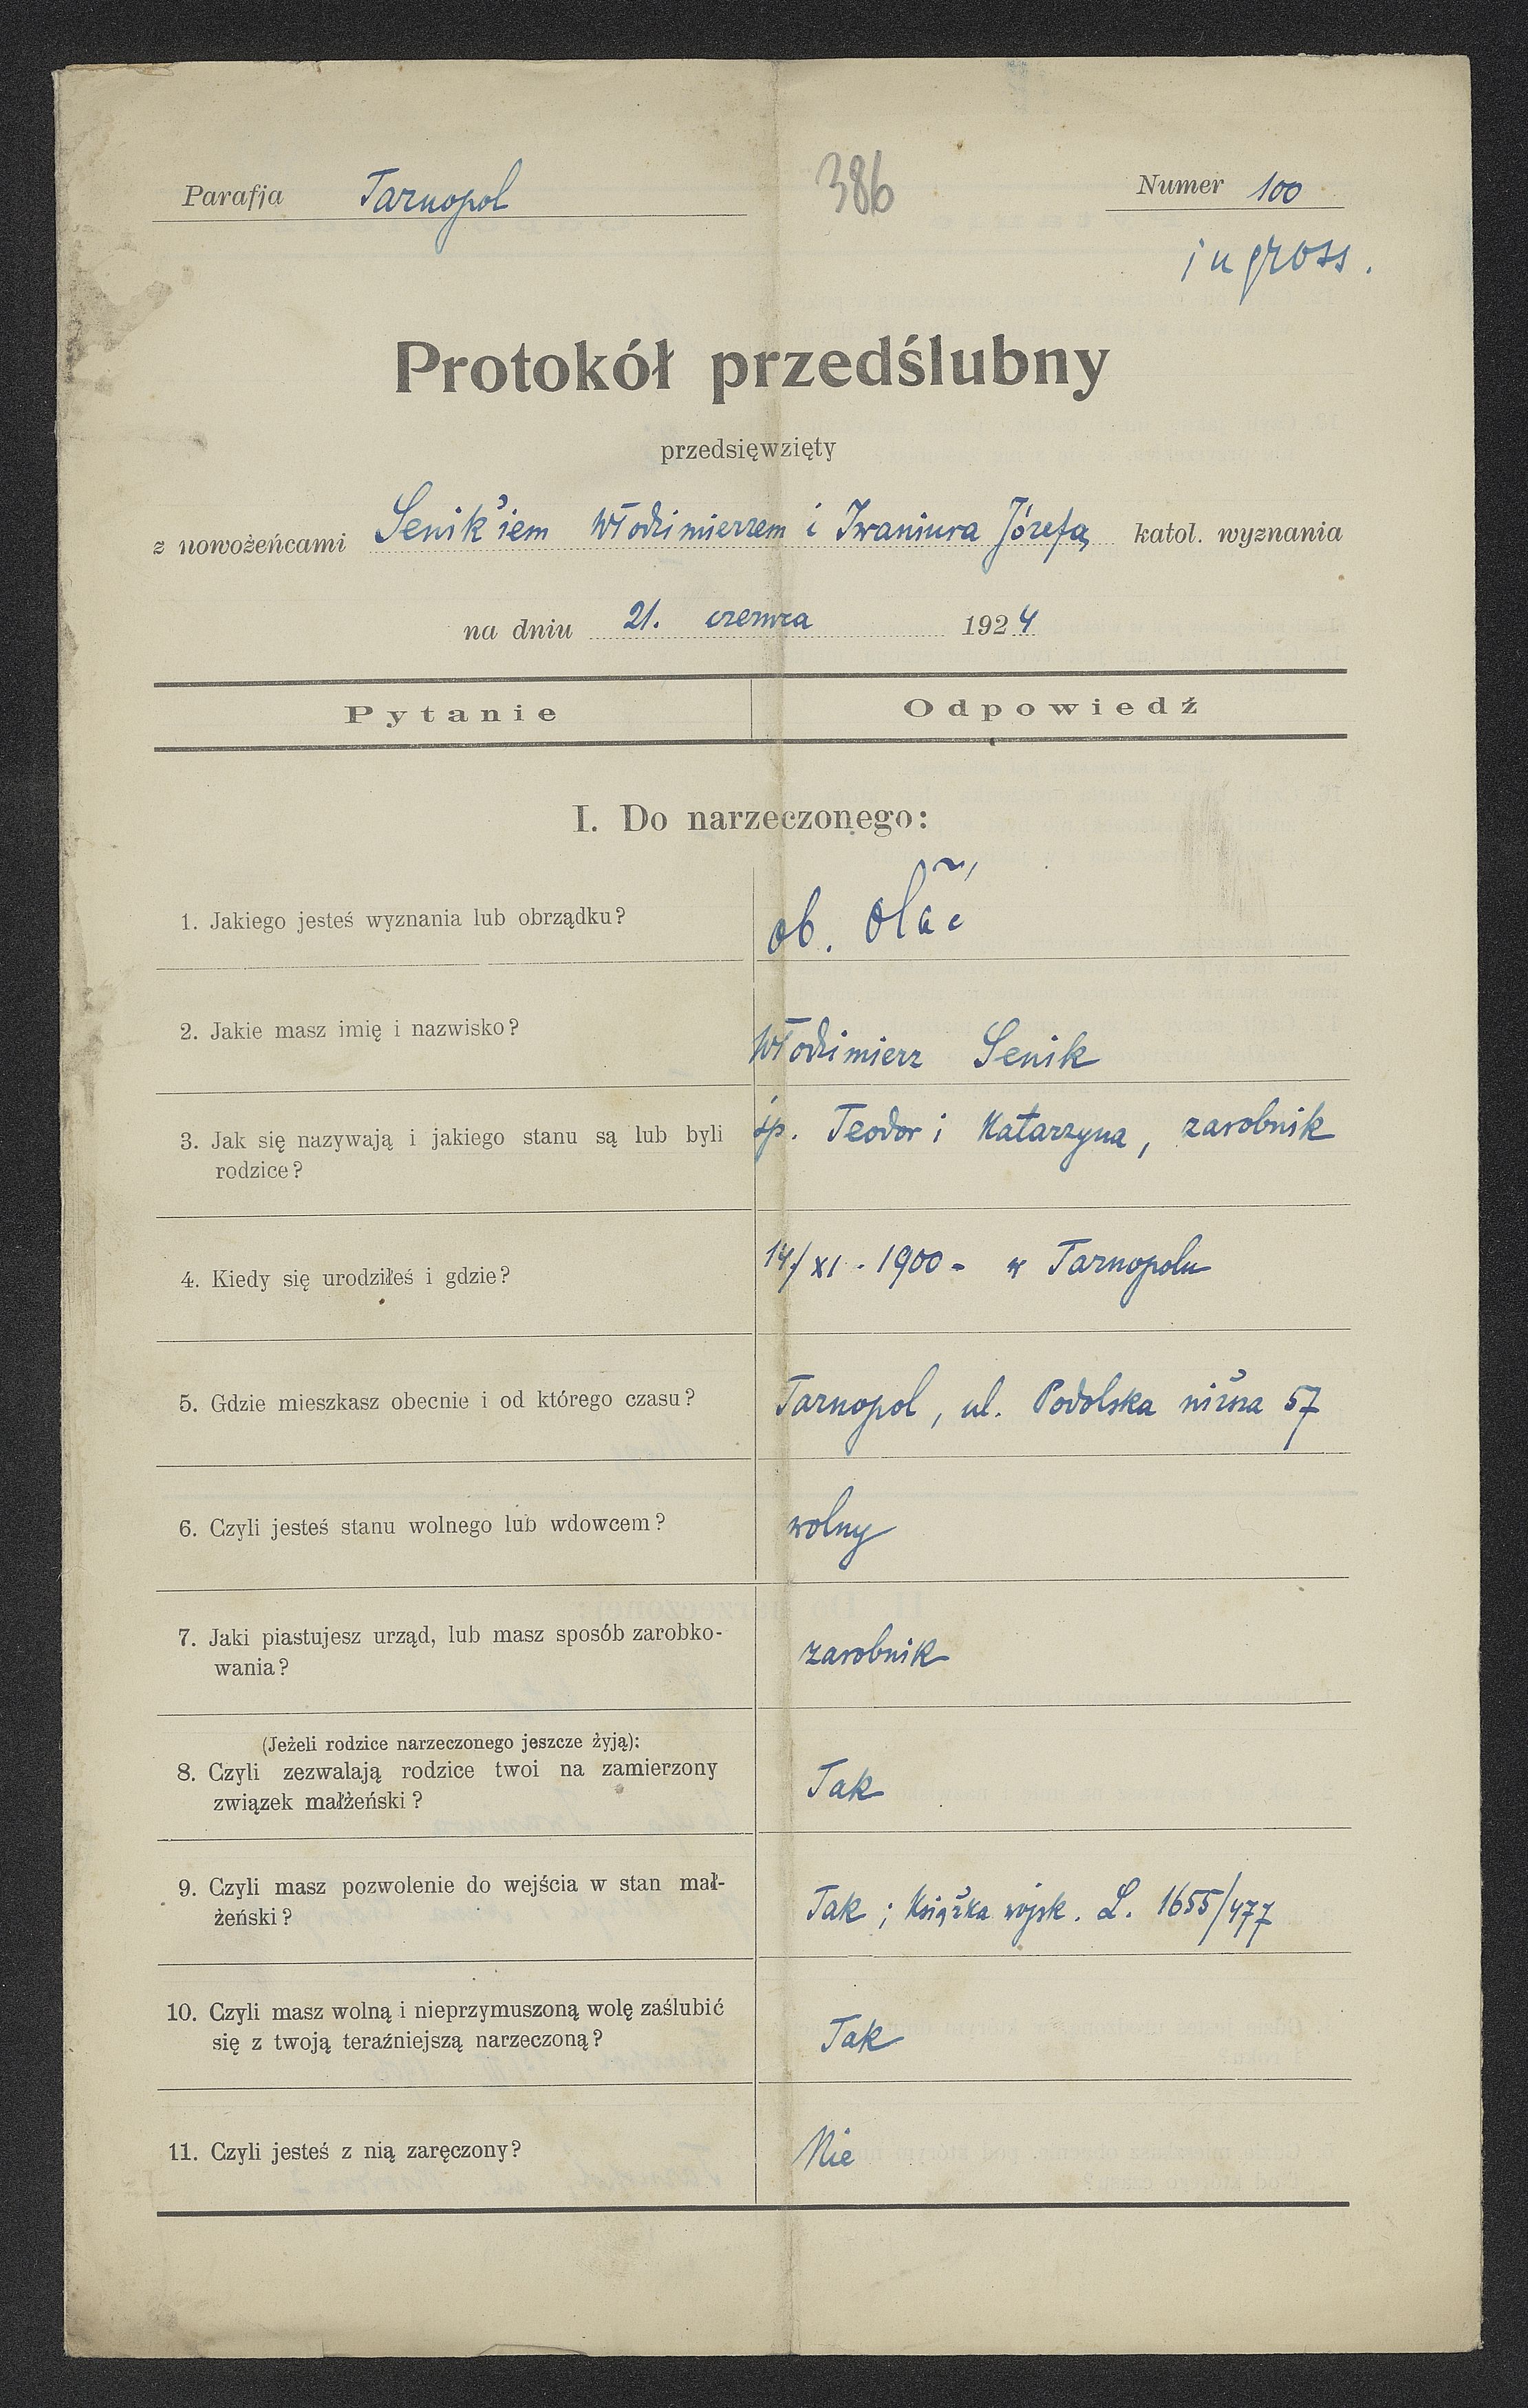 Parafja Tarnopol
386
Numer 100
ingross.
Protokół przedślubny
przedsięwzięty
z nowożeńcami Senik'iem Włodzimierzem i Iwaniura Józefą katol. wyznania
na dniu 21. czerwca 1924
Pytanie Odpowiedź
I. Do narzeczonego:
1. Jakiego jesteś wyznania lub obrządku? ob.
2. Jakie masz imię i nazwisko? Włodzimierz Senik
3. Jak się nazywają i jakiego stanu są lub byli śp. Teodor i Katarzyna, zarobnik
rodzice?
4. Kiedy się urodziłeś i gdzie? 14/XI. 1900 - w Tarnopolu
5. Gdzie mieszkasz obecnie i od którego czasu? Tarnopol, ul. Podolska niższa 57
6. Czyli jesteś stanu wolnego lub wdowcem? wolny
7. Jaki piastujesz urząd, lub masz sposób zarobko-
wania? zarobnik
(Jeżeli rodzice narzeczonego jeszcze żyją):
8. Czyli zezwalają rodzice twoi na zamierzony
związek małżeński? Tak
9. Czyli masz pozwolenie do wejścia w stan mał-
żeński? Tak; Książka wojsk. L. 1655/477
10. Czyli masz wolną i nieprzymuszoną wolę zaślubić
się z twoją teraźniejszą narzeczoną? Tak
11. Czyli jesteś z nią zaręczony? Nie